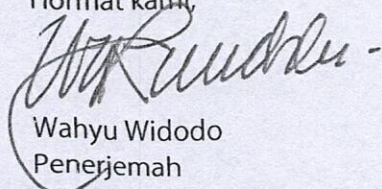 Hormat kami,
Wahyu Widodo
Penerjemah